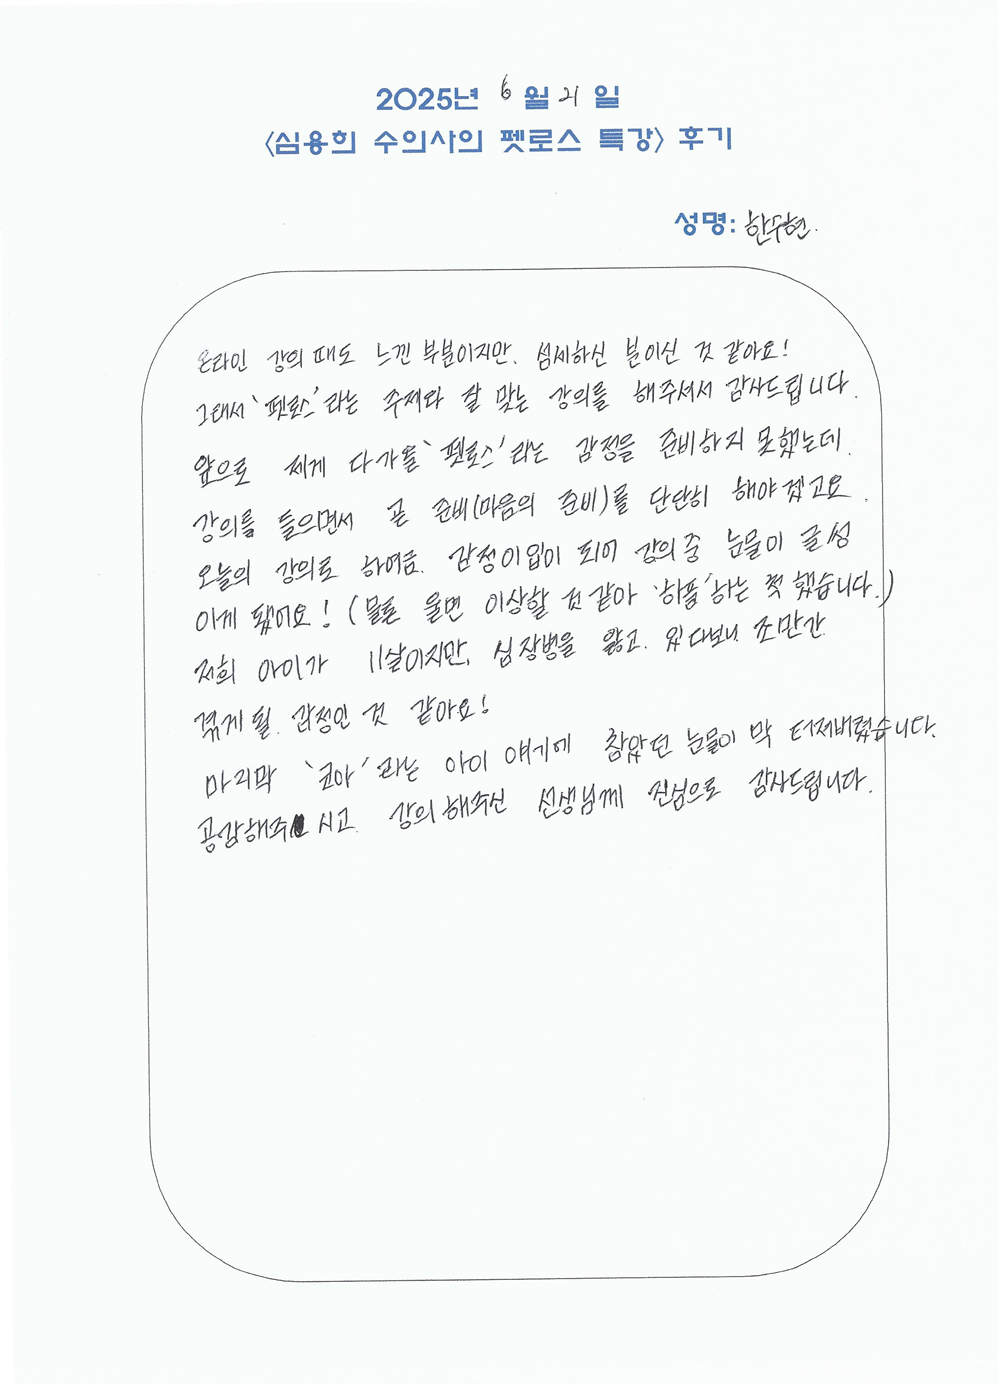 2025년 6월 21일
<심용희 수의사의 펫로스 특강> 후기
성명: 한수현.
온라인 강의 때도 느낀 부분이지만, 섬세하신 분이신 것 같아요!
그래서 '펫로스'라는 주제와 잘 맞는 강의를 해주셔서 감사드립니다.
앞으로 제게 다가올 '펫로스'라는 감정을 준비하지 못했는데,
강의를 들으면서 곧 준비(마음의 준비)를 단단히 해야겠고요.
오늘의 강의로 하여금, 감정이입이 되어 강의 중 눈물이 글썽
이게 됐어요! (물론 울면 이상할 것 같아 '하품'하는 척 했습니다.)
저희 아이가 11살이지만, 심장병을 앓고 있다보니 조만간
겪게 될 감정인 것 같아요!
마지막 '코아'라는 아이 얘기에 참았던 눈물이 막 터져버렸습니다.
공감해주시고 강의해주신 선생님께 진심으로 감사드립니다.